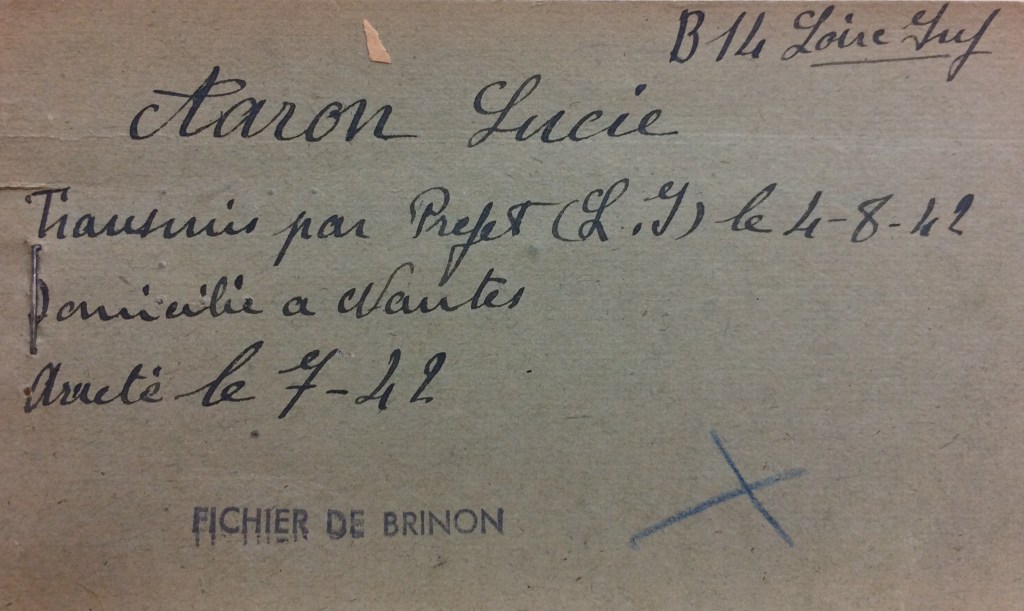 B 14 Loire Inf
Aaron Lucie
Transmis par Prefet (L.I) le 4-8-42
Domicilie a Nantes
Arreté le 7-42
FICHIER DE BRINON